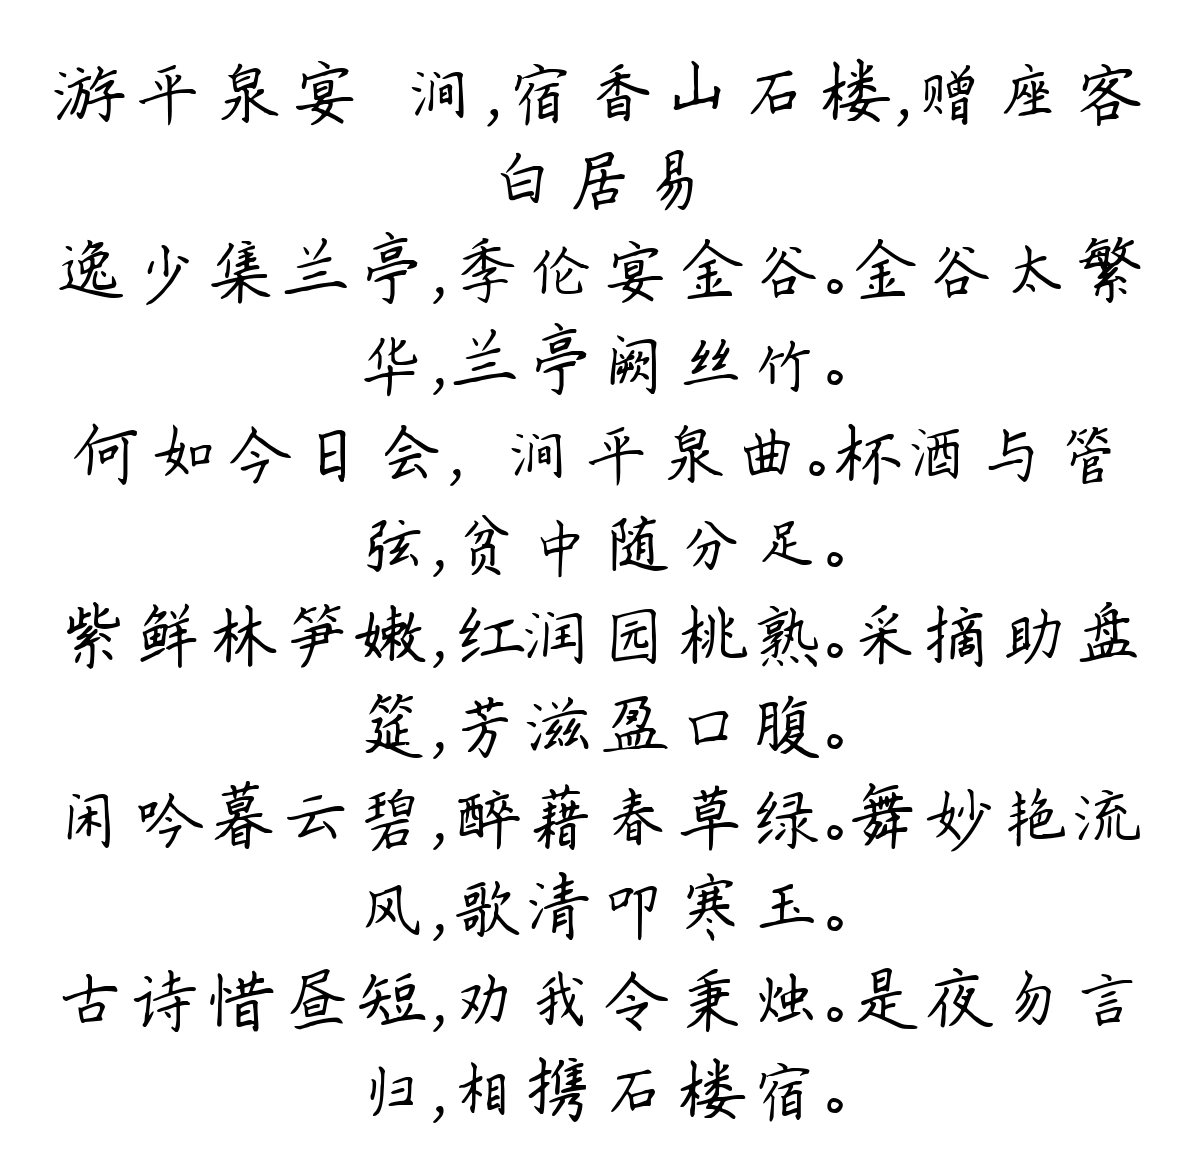 游平泉宴 涧,宿香山石楼,赠座客
白居易
逸少集兰亭,季伦宴金谷。金谷太繁
华,兰亭阙丝竹。
何如今日会, 涧平泉曲。杯酒与管
弦,贫中随分足。
紫鲜林笋嫩,红润园桃熟。采摘助盘
筵,芳滋盈口腹。
闲吟暮云碧,醉藉春草绿。舞妙艳流
风,歌清叩寒玉。
古诗惜昼短,劝我令秉烛。是夜勿言
归,相携石楼宿。